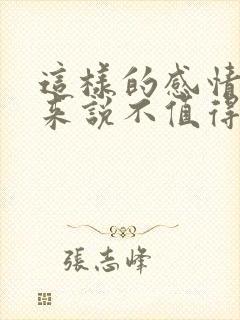 這樣的感情
来說不值得
張志峰